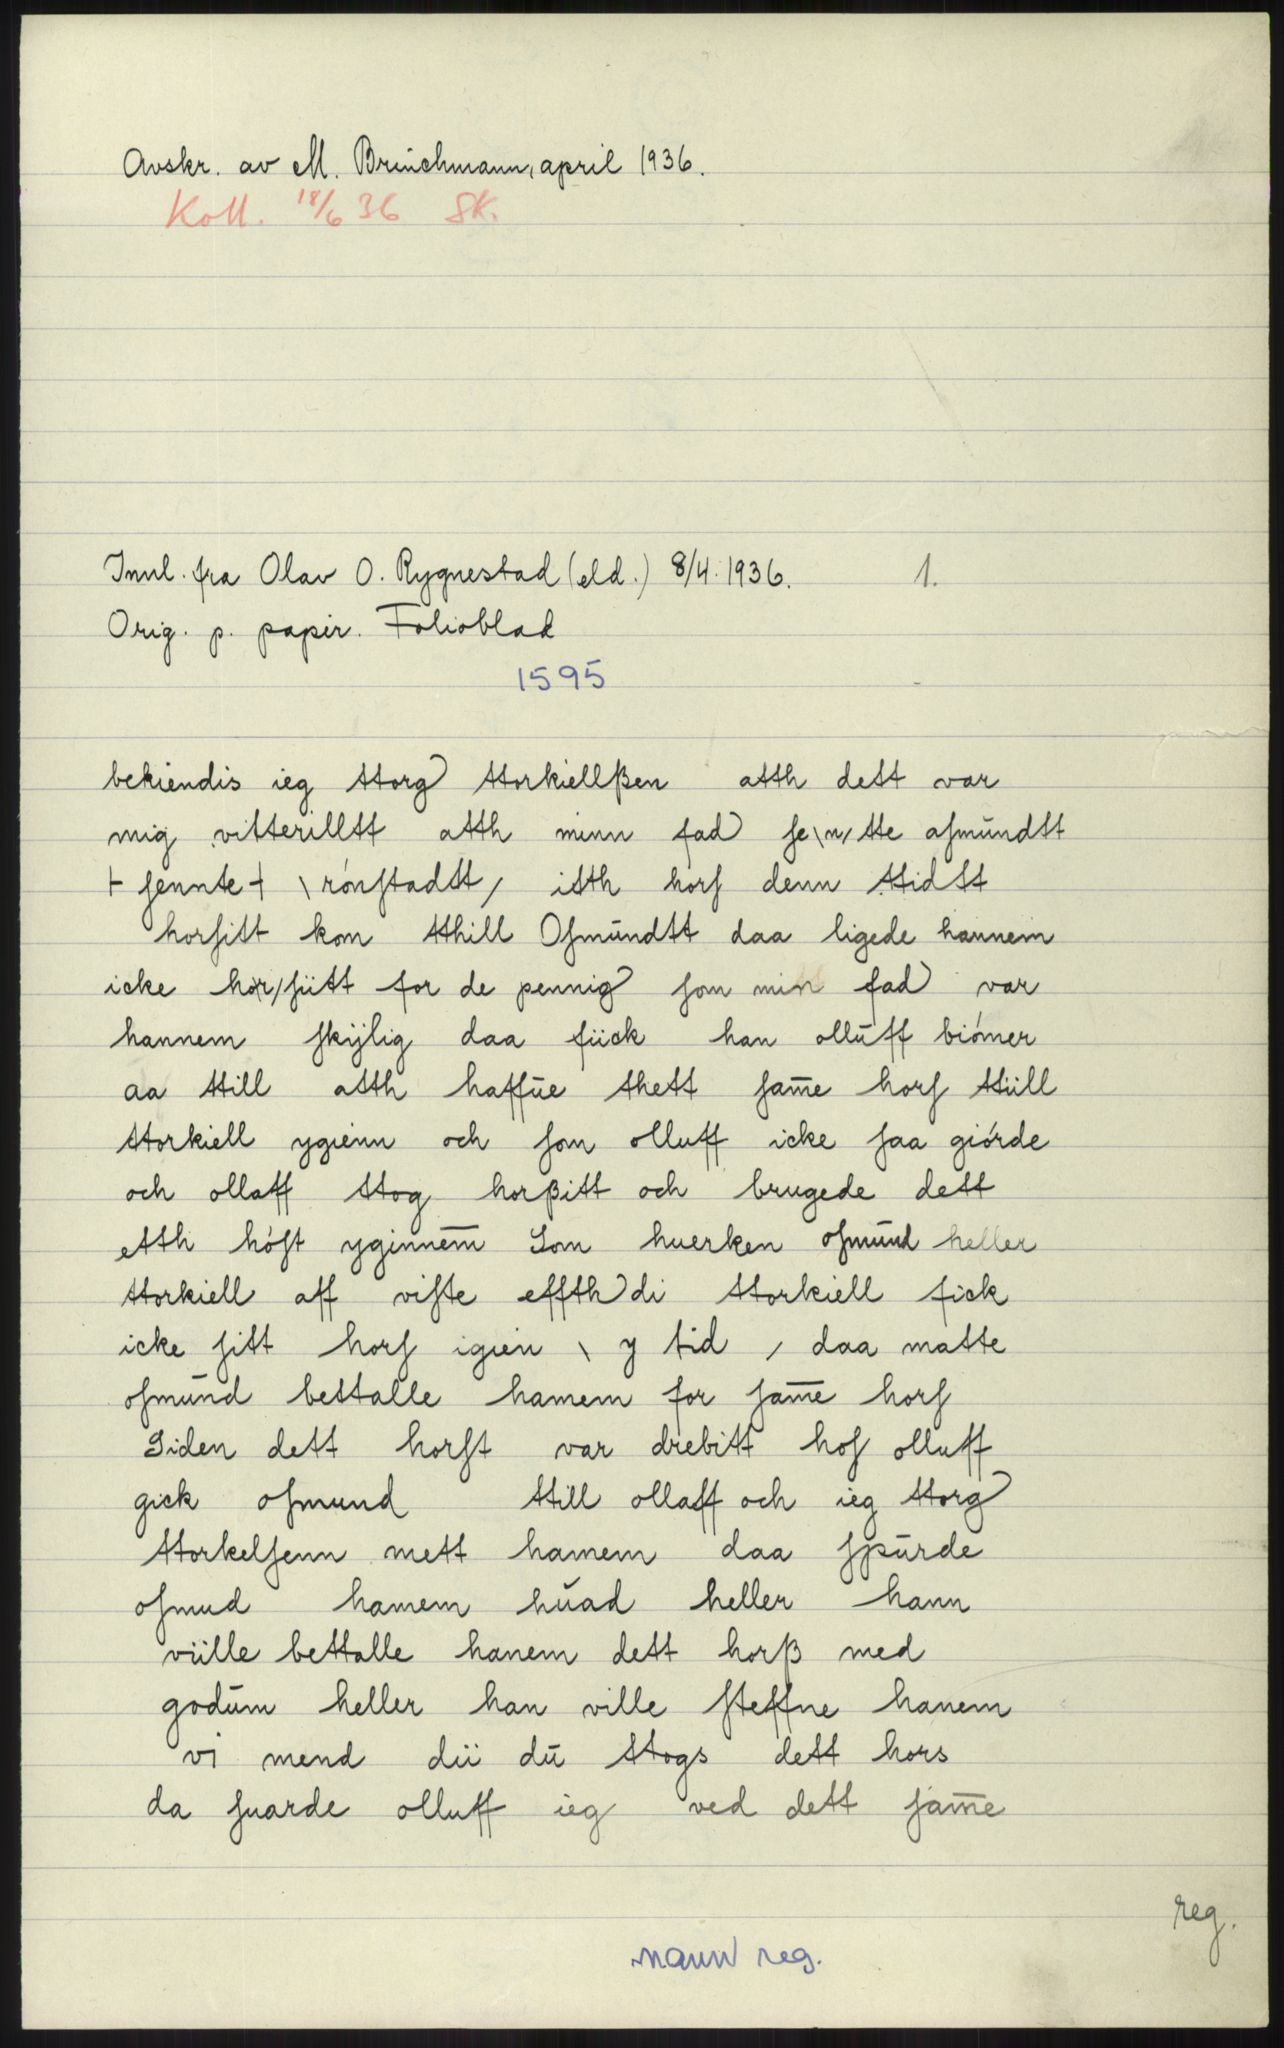 Avskr. av M. Brinchmann, april 1936.
Koll. 18/6 36 SK.
Innl. fra Olav O. Rygnestad (eld.) 8/4. 1936. 1.
Orig. p. papir. Folioblad
1595
bekiendis ieg ttorg) ttorkiellßen atth dett var
mig vitterilltt atth minn fad) ſe\n/tte aſmůndtt
⊢ ſennte ⊣ \ rónſtadtt / itth horſ denn ttidtt
horſitt kom tthill Oſmůndtt daa ligede hannem
icke ho\r/ſiitt for de pennig) ſom min fad) var
hannem ſkÿlig daa fiick han ollůff biómer
aa ttill atth haffůe thett ſam̅e horſ ttiill
ttorkiell ygienn och ſom olluff icke ſaa giórde
och ollaff ttog horßitt och brugede dett
etth hóſt yginnem̅ Som huerken oſmůnd heller
ttorkiell aff viſte effth) di ttorkiell fick
icke ſitt horſ igien \ y tid / daa matte
oſmůnd bettalle hamem for ſam̅e horſ
Siden dett horſt var drebitt hoſ olluff
gick oſmund ttill ollaff och ieg ttorg)
ttorkelſenn mett hamem daa ſpůrde
oſmud hamem hůad heller hann
viille bettalle hanem dett horß med
godům heller han ville ſteffne hanem
vi mend dii dů ttogs dett hors
da ſuarde olluff ieg ved dett ſam̅e
reg.
navn reg.